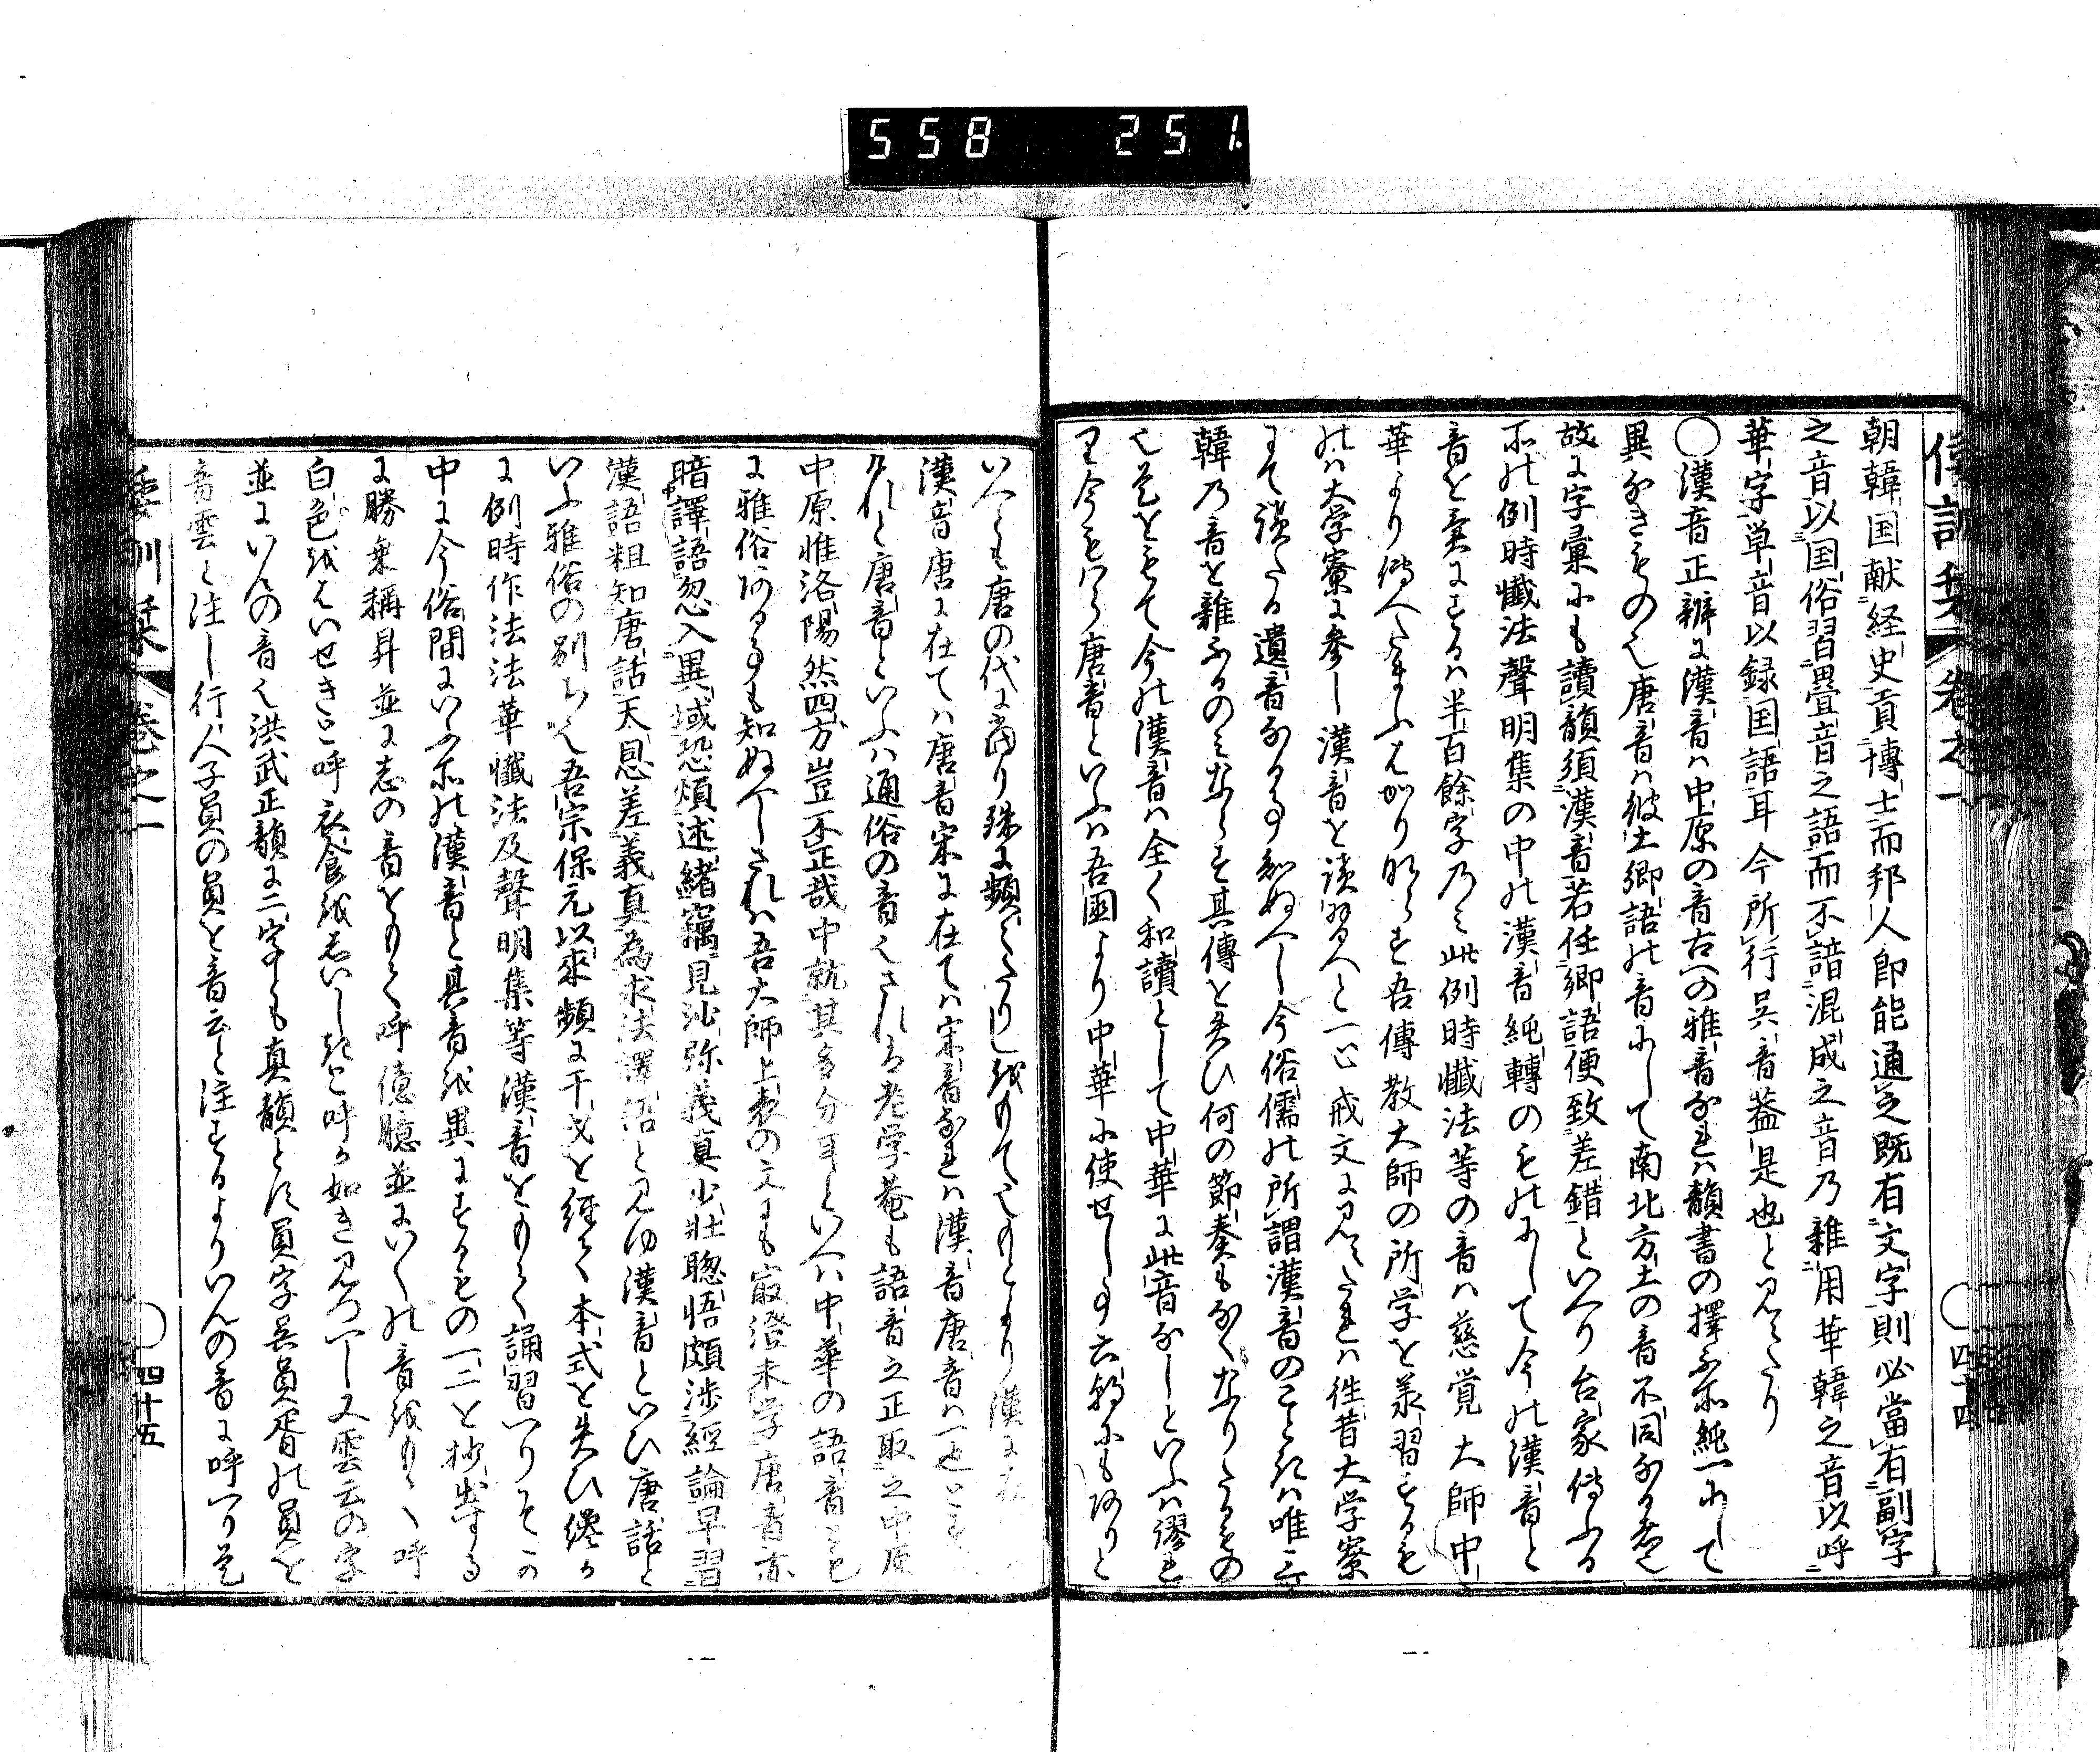 558 251.
倭訓栞 卷之一 ○四十四
朝韓国献経史貢博士而邦人即能通之既有文字則必當有副字
之音以国俗習畳音之語而不諳混成之音乃雜用華韓之音以呼
華字単音以録国語耳今所行呉音蓋是也と见えたり
○漢音正辨に漢音ハ中原の音古への雅音なれハ韻書の擇ふ所純一にして
異なきもの也唐音ハ彼土郷語の音にして南北方土の音不同なる者也
故に字彙にも讀韻須漢音若任郷語便致差錯といへり台家傳ふる
所の例時懺法聲明集の中の漢音純轉のものにして今の漢音と
音を異にするハ半百餘字乃ミ此例時懺法等の音ハ慈覚大師中
華より傳へたまふはかりならす吾傳教大師の所学を兼習するも
のハ大学寮に参し漢音を讀習へと一心戒文に見えたれハ徃昔大学寮
にて讀たる遺音なる事知ぬへし今俗儒の所謂漢音のことハ唯三
韓乃音を雜ふるのミならす其傳を失ひ何の節奏もなくなりたるもの
也是をもて今の漢音ハ全く和讀として中華に此音なしといふハ謬れ
り今もハら唐音といふハ吾国より中華に使せし事六朝にもありと
いへとも唐の代に當り殊に頻々たりしをもて也のこより漢に在
漢音唐に在てハ唐音宋に在てハ宋音なれハ漢音唐音ハ一也と
けれと唐音といふハ通俗の音也されハ老学菴も語音之正取之中原
中原惟洛陽然四方豈不正哉中就其多分耳といへハ中華の語音にも
に雅俗ある事も知ぬへしされハ吾大師上表の文にも最澄未学唐音亦
暗譯語忽入異域恐煩述緒竊見沙弥義真少壮聰悟頗渉経論早習
漢語粗知唐話天恩差義真為求法譯語と见ゆ漢音といひ唐話と
いふ雅俗の別ち也吾宗保元以來頻に干戈を経て本式を失ひ纔か
に例時作法法華懺法及聲明集等漢音をもて誦習へりそか
中に今俗間にいふ所の漢音と具音を異にするもの一二を抄出する
に勝乗稱昇並に志の音をもて呼億臆並にいくの音をもて呼
白色をはいせきと呼衣食をゑいしきと呼る如き见つへし又雲云の字
並にいんの音也洪武正韻に二字とも真韻とす員字呉員胥の員を
音雲と注し行人子員の員を音云と注するよりいんの音に呼へり是
倭訓栞 卷之一 ○四十五